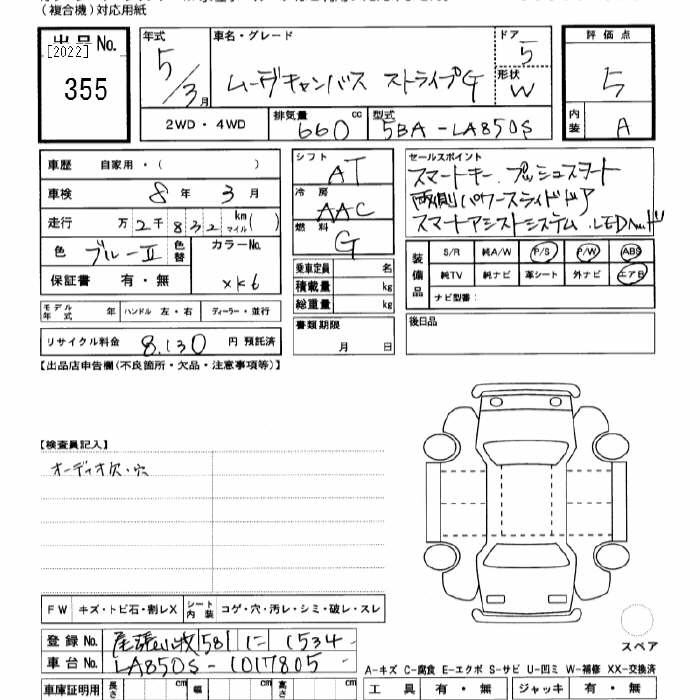 (複合機)対応用紙
出品No. 年式 車名・グレード ドア 評価点
[2022] 5/3月 ムーヴキャンバス ストライプG 5 5
355 形状 W
2WD・4WD 排気量 660 cc 型式 5BA-LA850S 内装 A
車歴 自家用・( ) シフト AT セールスポイント
車検 8年 3月 冷房 AAC スマートキー. プッシュスタート
走行 万2千832 km マイル( ) 燃料 G 両側パワースライドドア
色 ブルーII 色替 カラーNo. スマートアシストシステム.LED
保証書 有・無 XK6 乗車定員 名 装備品 S/R 純A/W P/S P/W ABS
積載量 kg 純TV 純ナビ 革シート 外ナビ エアB
モデル年式 年 ハンドル 左・右 ディーラー・並行 総重量 kg ナビ型番:
リサイクル料金 8,130 円 預託済 書類期限 月 日 後日品
【出品店申告欄(不良箇所・欠品・注意事項等)】
【検査員記入】
オーディオ欠・穴
FW キズ・トビ石・割レX シート内装 コゲ・穴・汚レ・シミ・破レ・スレ
スペア
登録No. 尾張小牧 581 に 1534
車台No. LA850S-1017805
A-キズ C-腐食 E-エクボ S-サビ U-凹ミ W-補修 XX-交換済
車庫証明用 長さ cm 幅 cm 高さ cm 工具 有・無 ジャッキ 有・無